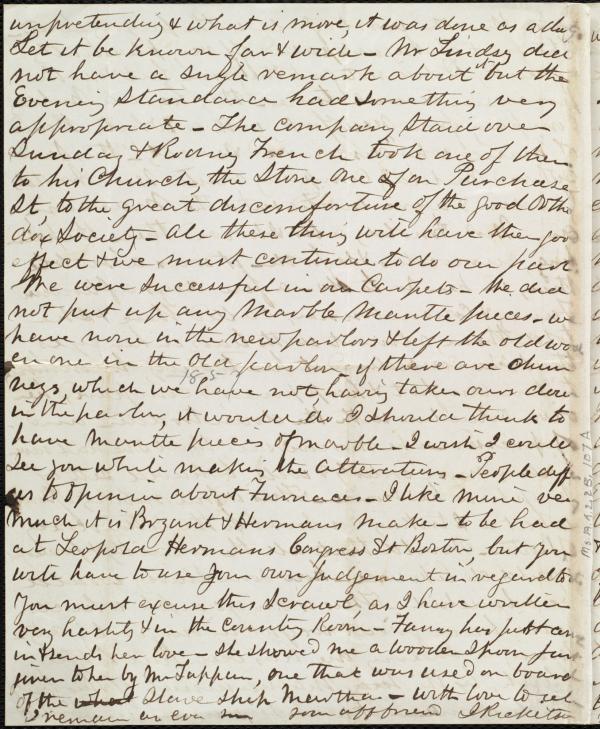 unpretending & what is more, it was done as a du
Let it be known far & wide - Mr Lindsey did
not have a single remark about it but the
Evening Standard had something very
appropriate - The company staid over
Sunday & Rodney French took one of them
to his Church, the Stone one on Purchase
St, to the great discomfiture of the good Otho
dox Society - All these things will have their good
effect & we must continue to do our part.
We were successful in our Carpets - We did
not put up any Marble Mantle pieces - we
have none in the new parlors & left the old wood
en one in the old parlor - if there are chim
neys, which we have not, having taken ours down
in the parlor, it would do I should think to
have mantle pieces of marble - I wish I could
see you while making the alterations - People diff
as to opinion about Furnaces - I like mine very
much it is Bryant & Hermans make - to be had
at Leopold Hermans Congress St Boston, but you
will have to use your own judgement in regard to it
You must excuse this scrawl, as I have written
very hastily & in the Counting Room - Fanny has just come
in & sends her love - She showed me a wooden spoon just
given to her by Mr Tappan, one that was used on board
of the Slave ship - with love to self
I remain as ever your aff friend J Ricketson
185
Ms.A.1.2.25.107A